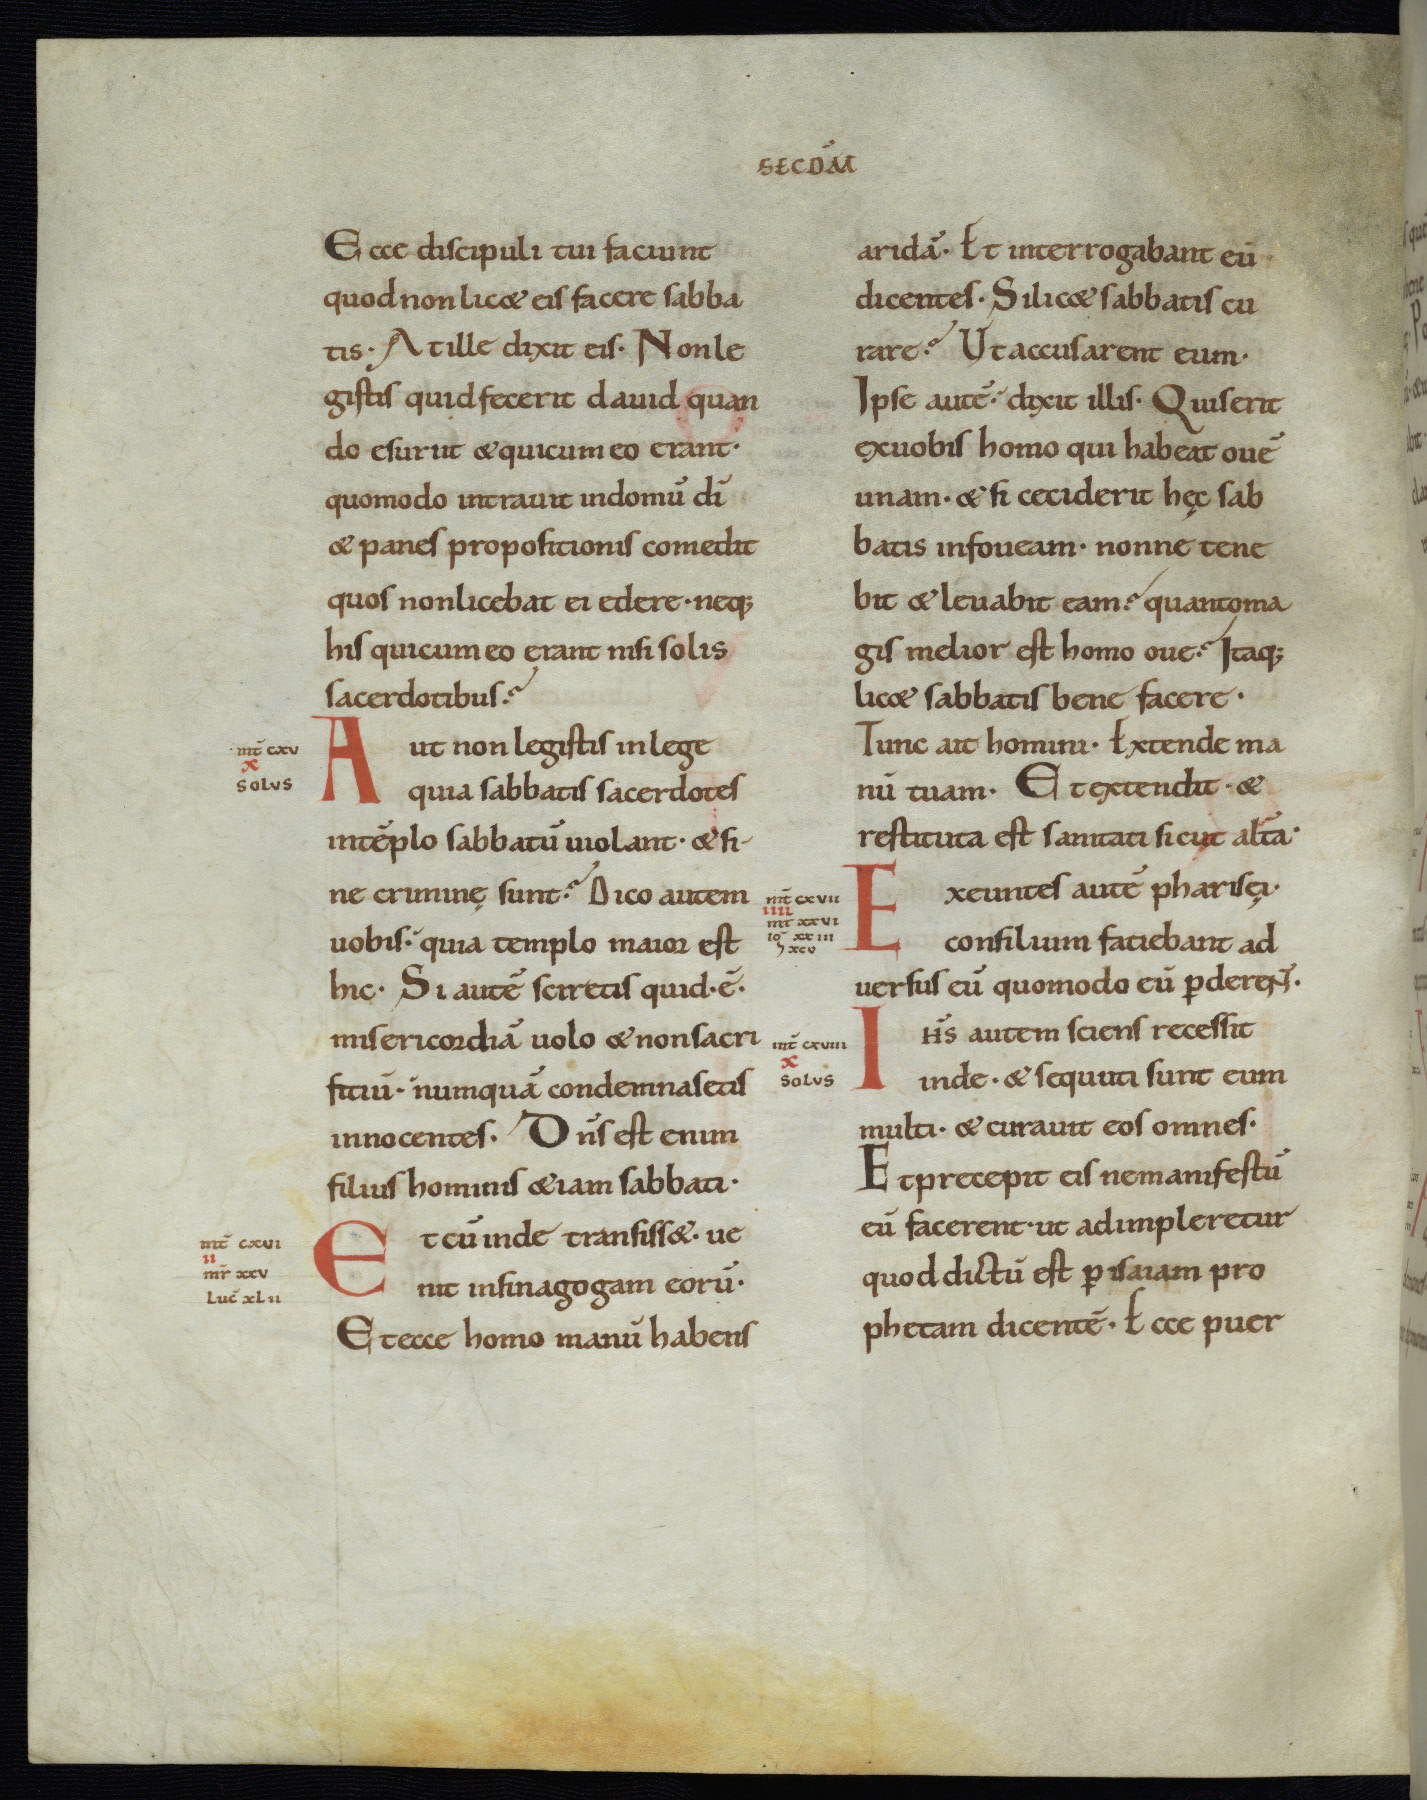 SECDM̄
Ecce discipuli tui faciunt
quod non licet eis facere sabba
tis· At ille dixit eis· Non le
gistis quid fecerit dauid quan
do esuriit & qui cum eo erant·
quomodo intrauit in domū dī
& panes propositionis comedit
quos non licebat ei edere· neq;
his qui cum eo erant nisi solis
sacerdotibus?
mt̄ cxv
x
solus
Aut non legistis in lege
quia sabbatis sacerdotes
in tēplo sabbatū uiolant· & si
ne criminę sunt? Dico autem
uobis· quia templo maior est
hic· Si autē sciretis quid·ē·
misericordiā uolo & non sacri
fitiū· numquā condemnasetis
innocentes· Dn̄s est enim
filius hominis &iam sabbati·
mt̄ cxvi
ii
mr̄ xxv
Luc̄ xLii
Et cū inde transiss&· ue
nit in sinagogam eorū·
Et ecce homo manū habens
aridā· Et interrogabant eū
dicentes· Si lic& sabbatis cu
rare? Ut accusarent eum·
Ipse autē· dixit illis· Quis erit
ex uobis homo qui habeat ouē
unam· & si ceciderit hęc sab
batis in foueam· nonne tene
bit & leuabit eam? quanto ma
gis melior est homo oue? Itaq;
lic& sabbatis bene facere·
Tunc ait homini· Extende ma
nū tuam· Et extendit· &
restituta est sanitati sicut alt̄a·
mt̄ cxvii
iiii
mr̄ xxvi
io xxiii
⁊ xcv
Exeuntes autē pharisęi·
consilium faciebant ad
uersus eū quomodo eū ꝑderen̄t·
mt̄ cxviii
x
solus
Ihs̄ autem sciens recessit
inde· & sequuti sunt eum
multi· & curauit eos omnes·
Et precepit eis ne manifestū
eū facerent· ut adimpleretur
quod dictū est ꝑ isaiam pro
phetam dicentē· Ecce puer